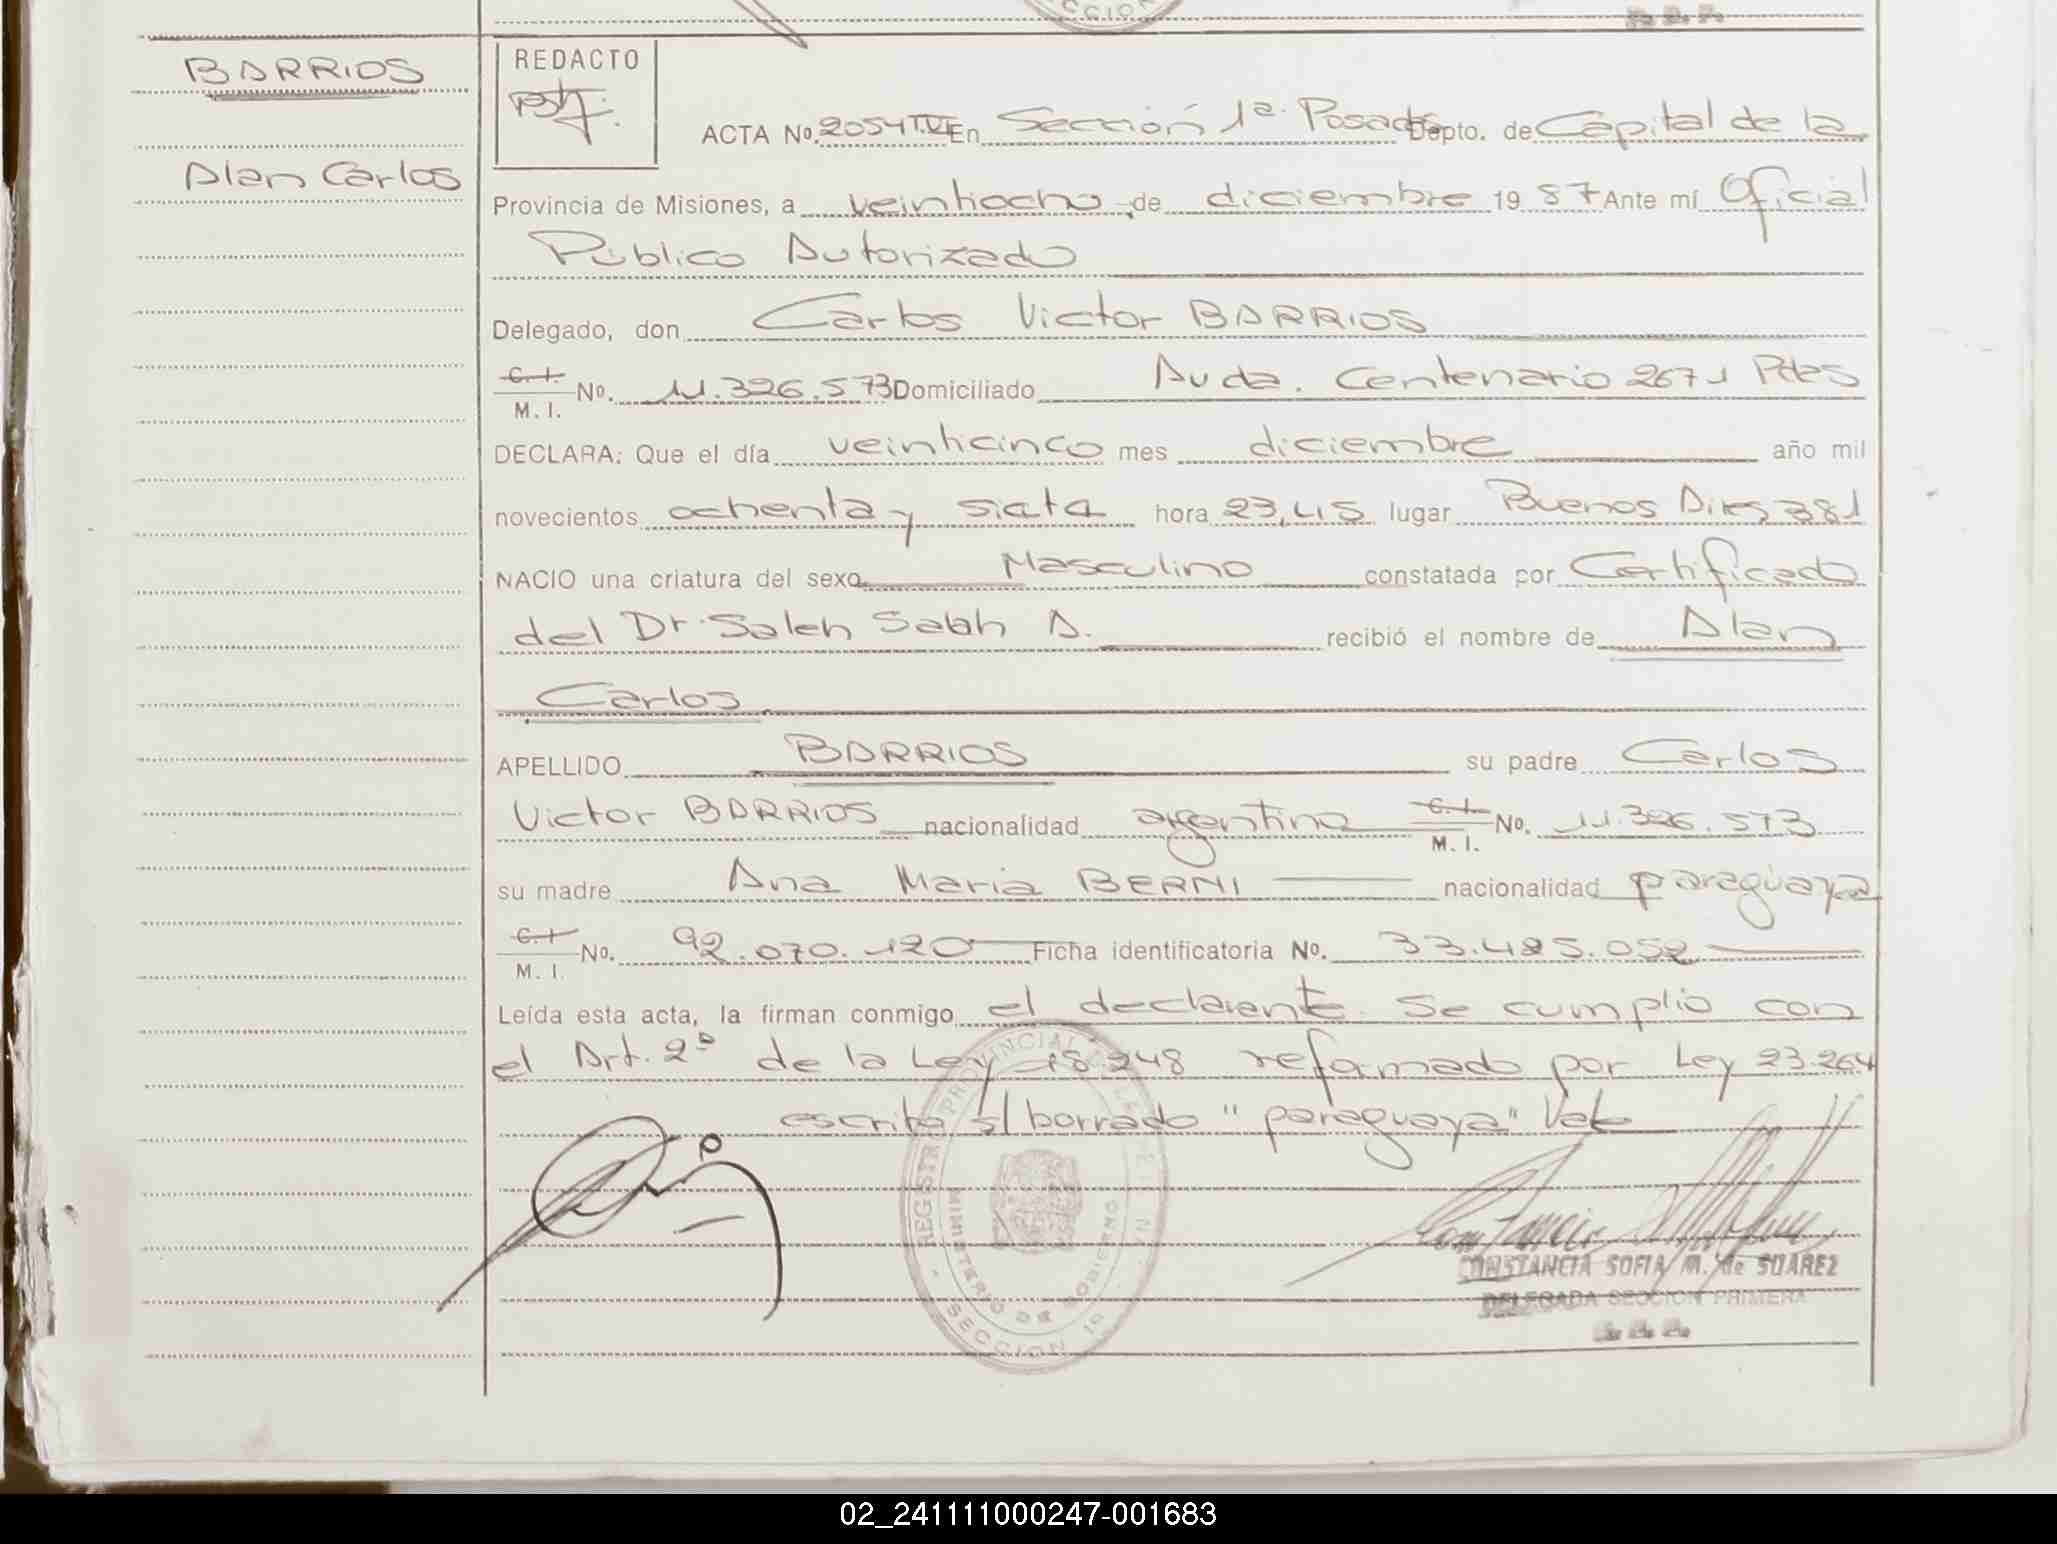 CCION
BARRIOS
Alan Carlos
REDACTO
ACTA No. 2054 T.VI En Sección 1ª. Posadas Depto. de Capital de la
Provincia de Misiones, a veintiocho de diciembre 19 87 Ante mí Oficial
Público Autorizado
Delegado, don Carlos Victor BARRIOS
C. I. M. I. No. 11.326.573 Domiciliado Avda. Centenario 2671 Pdas
DECLARA: Que el día veinticinco mes diciembre año mil
novecientos ochenta y siete hora 23,45 lugar Buenos Aires 381
NACIO una criatura del sexo Masculino constatada por Certificado
del Dr. Saleh Sabh A. recibió el nombre de Alan
Carlos
APELLIDO BARRIOS su padre Carlos
Victor BARRIOS nacionalidad argentina C. I. M. I. No. 11.326.573
su madre Ana Maria BERNI nacionalidad paraguaya
C. I. M. I. No. 92.070.120 Ficha identificatoria No. 33.485.052
Leída esta acta, la firman conmigo el declarante. Se cumplió con
el Art. 2º de la Ley 18.248 reformado por Ley 23.264
escrito s/ borrado "paraguaya" Vale
REGISTRO PROVINCIAL DE
MINISTERIO DE GOBIERNO
SECCION 1a
CONSTANCIA SOFIA M. de SUAREZ
DELEGADA SECCION PRIMERA
02_241111000247-001683